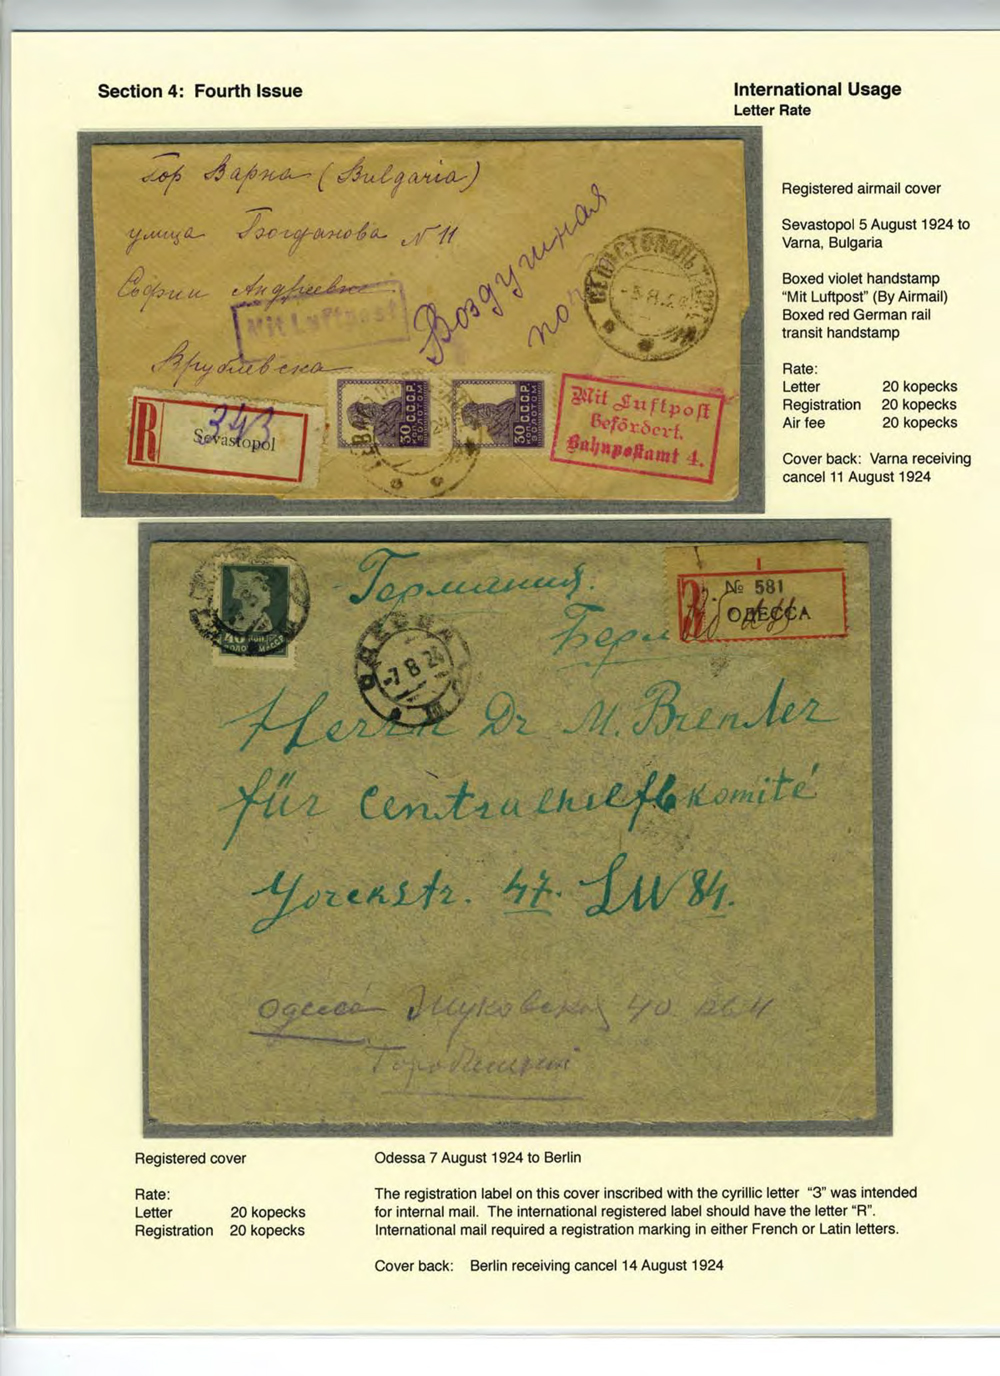 Section 4: Fourth Issue
International Usage
Letter Rate
Гор Варна (Bulgaria)
улица Богданова № 11
Софии Андреевне
Врублевская
Воздушная
поч
Mit Luftpost
СЕВАСТОПОЛЬ
-5.8.24
R
343
Sevastopol
30 СССР
ЗОЛОТОМ
30 СССР
ЗОЛОТОМ
Mit Luftpost
befördert.
Bahnpostamt 4.
Registered airmail cover
Sevastopol 5 August 1924 to
Varna, Bulgaria
Boxed violet handstamp
“Mit Luftpost” (By Airmail)
Boxed red German rail
transit handstamp
Rate:
Letter 20 kopecks
Registration 20 kopecks
Air fee 20 kopecks
Cover back: Varna receiving
cancel 11 August 1924
Германия.
№ 581
ОДЕССА
ОДЕССА
-7 8 24
Herrn Dr M. Brender
für Centralhilfskomité
Yorckstr. 47. SW 84.
Одесса Жуковская 40
Registered cover
Rate:
Letter 20 kopecks
Registration 20 kopecks
Odessa 7 August 1924 to Berlin
The registration label on this cover inscribed with the cyrillic letter “3” was intended
for internal mail. The international registered label should have the letter “R”.
International mail required a registration marking in either French or Latin letters.
Cover back: Berlin receiving cancel 14 August 1924